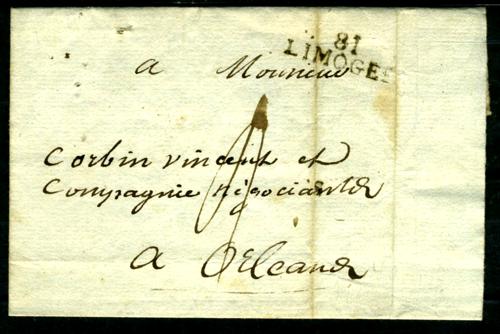 81
LIMOGES
a Monsieur
Corbin vincent et
Compagnie négociants
a Orléans